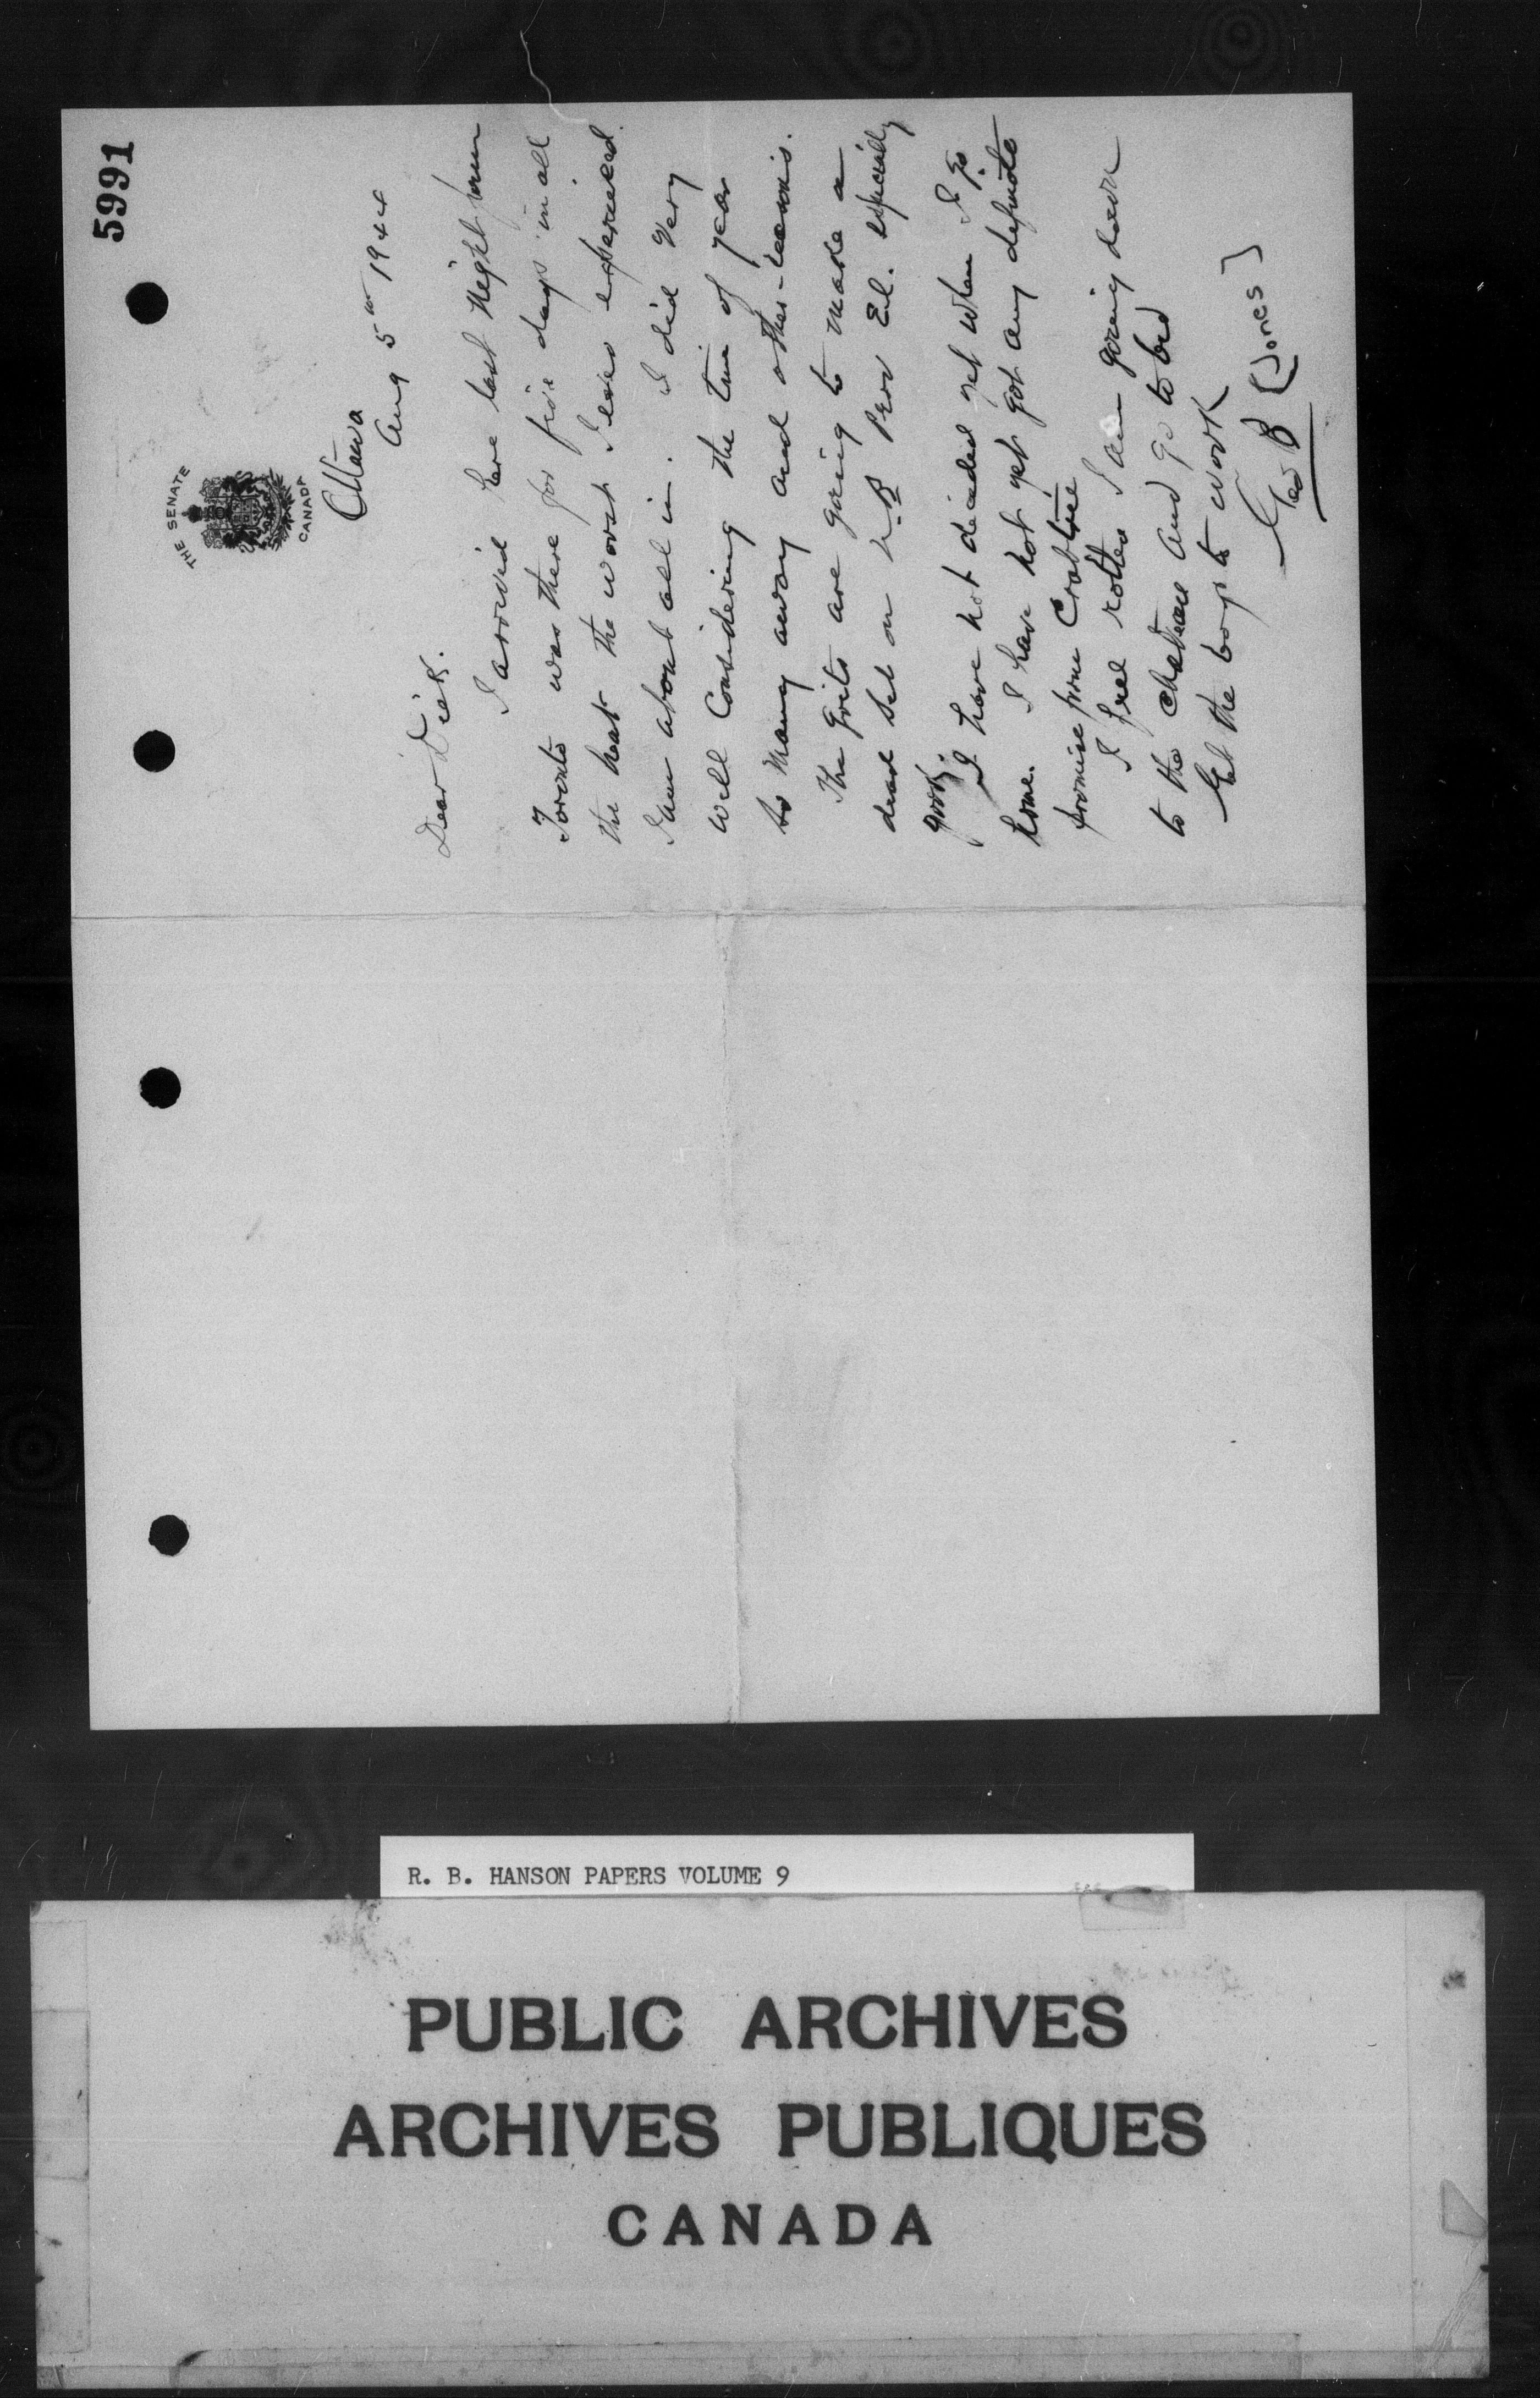 5991
THE SENATE
CANADA
Ottawa
Aug 5th 1944
Dear Dick.
I arrived here last night from
Toronto was there for five days in all
the heat the worst I ever experienced.
I am about all in. I did very
well Considering the time of year
to many away and other reasons.
The Grits are going to make a
dead set on N.B. Prov El. especially
York.
I have not decided yet when I go
home. I have not yet got any definite
promise from Crabtree
I feel rotten I am going down
to the Chateau and go to bed
Get the boys to work
Geo B (Jones)
R. B. HANSON PAPERS VOLUME 9
PUBLIC ARCHIVES
ARCHIVES PUBLIQUES
CANADA